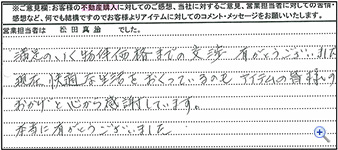 ※ご意見欄：お客様の不動産購入に対してのご感想、当社に対するご意見、営業担当者に対しての苦情・
感想など、何でも結構ですのでお客様よりアイテムに対してのコメント・メッセージをお願いいたします。
営業担当者は 松田真治 でした。
満足のいく物件価格までの交渉 有がとうございました
現在、快適な生活をおくっているのも アイテムの皆様の
おかげと心から感謝しています。
本当に有がとうございました